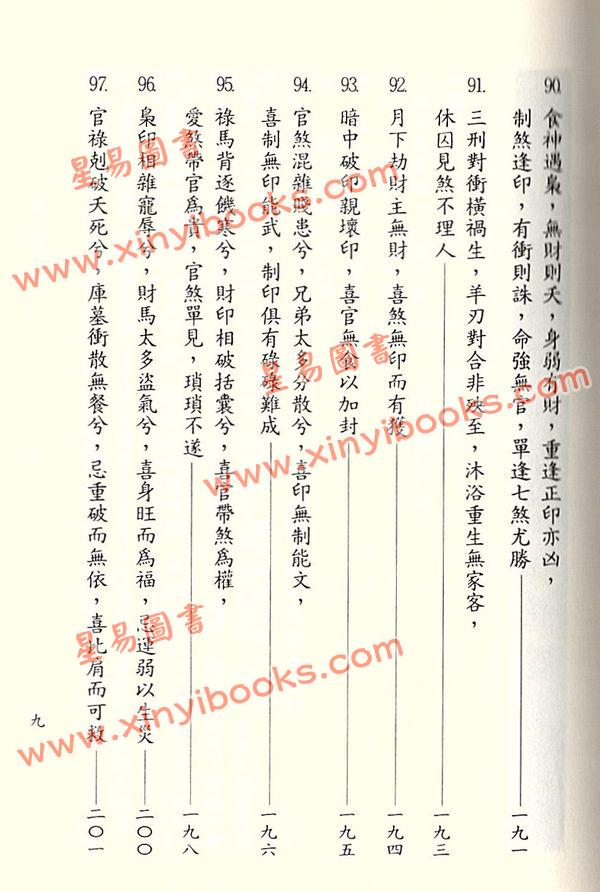 90. 食神遇梟，無財則夭，身弱有財，重逢正印亦凶，
制煞逢印，有衝則誅，命強無官，單逢七煞尤勝——一九一
91. 三刑對衝橫禍生，羊刃對合非殃至，沐浴重生無家客，
休囚見煞不理人——一九三
92. 月下劫財主無財，喜煞無印而有獲——一九四
93. 暗中破印親壞印，喜官無食以加封——一九五
94. 官煞混雜賤患兮，兄弟太多分散兮，喜印無制能文，
喜制無印能武，制印俱有碌碌難成——一九六
95. 祿馬背逐饑寒兮，財印相破括囊兮，喜官帶煞為權，
愛煞帶官為貴，官煞單見，瑣瑣不遂——一九八
96. 梟印相雜寵辱兮，財馬太多盜氣兮，喜身旺而為福，忌運弱以生災——二〇〇
97. 官祿剋破夭死兮，庫墓衝散無餐兮，忌重破而無依，喜比肩而可救——二〇一
九
星易圖書
www.xinyibooks.com
星易圖書
www.xinyibooks.com
星易圖書
www.xinyibooks.com